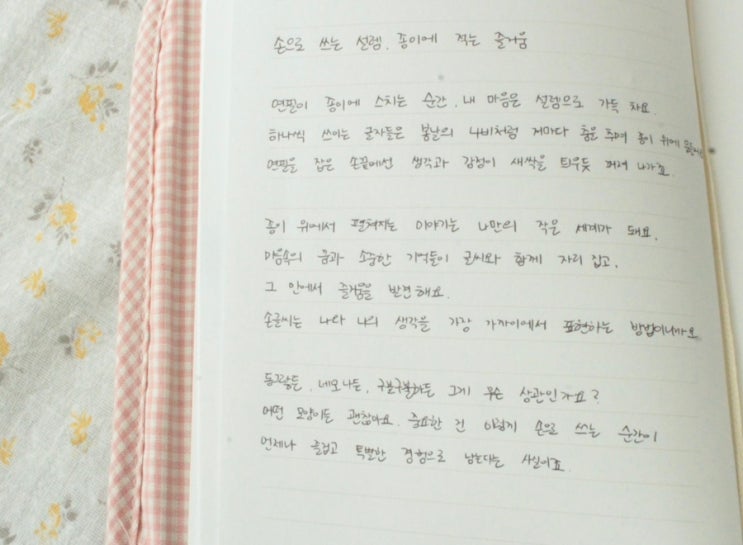 손으로 쓰는 설렘, 종이에 적는 즐거움
연필이 종이에 스치는 순간, 내 마음은 설렘으로 가득 차요.
하나씩 쓰이는 글자들은 봄날의 나비처럼 저마다 춤을 추며 종이 위에
연필을 잡은 손끝에선 생각과 감정이 새싹을 틔우듯 퍼져 나가죠.
종이 위에서 펼쳐지는 이야기는 나만의 작은 세계가 돼요.
마음속의 꿈과 소중한 기억들이 글씨와 함께 자리 잡고,
그 안에서 즐거움을 발견해요.
손글씨는 나와 나의 생각을 가장 가까이에서 표현하는 방법이니까요
동그랗든, 네모나든, 구불구불하든 그게 무슨 상관인가요?
어떤 모양이든 괜찮아요. 중요한 건 이렇게 손으로 쓰는 순간이
언제나 즐겁고 특별한 경험으로 남는다는 사실이죠.